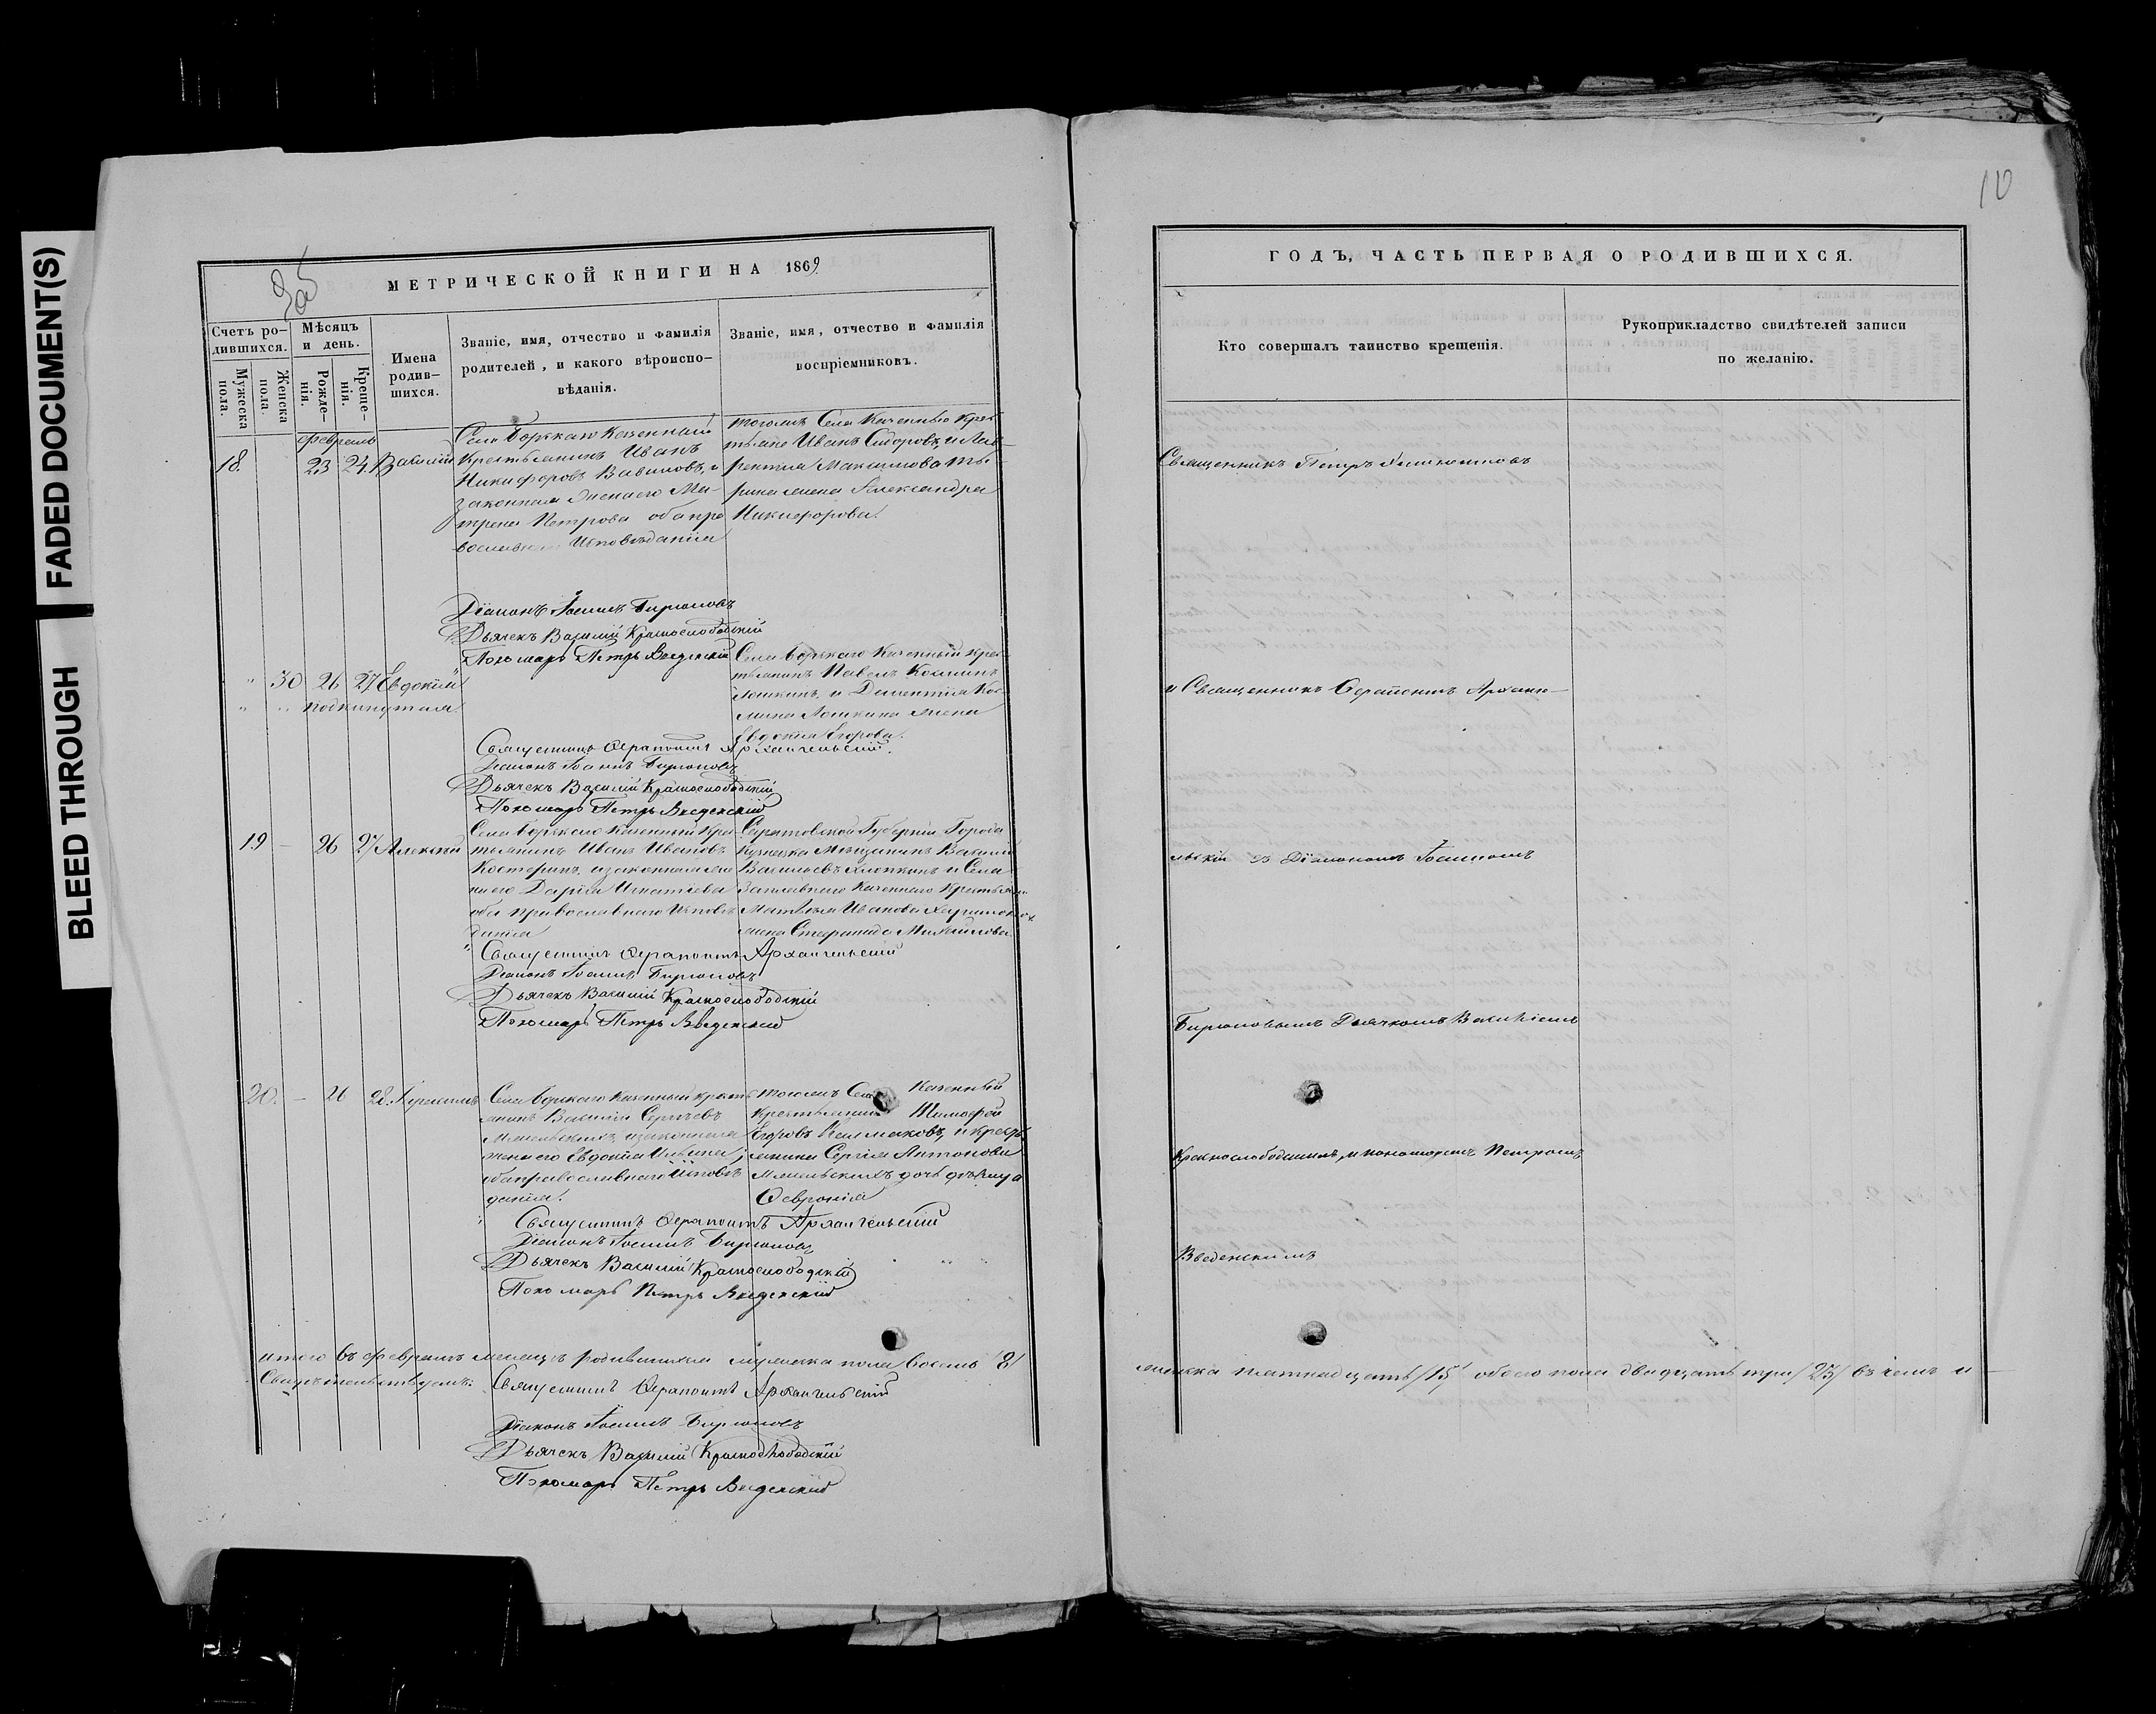 FADED DOCUMENT(S)
BLEED THROUGH
10
МЕТРИЧЕСКОЙ КНИГИ НА 1869
Счетъ ро-
дившихся.
Мужеска
пола.
Женска
пола.
Мѣсяцъ
и день.
Рожде-
нія.
Креще-
нія.
Имена
родив-
шихся.
Званіе, имя, отчество и фамилія
родителей, и какого вѣроиспо-
вѣданія.
Званіе, имя, отчество и фамилія
воспріемниковъ.
февраль
18. 23 24 Василій
Села Борскаго Казенный
Крестьянинъ Иванъ
Никифоровъ Вавиловъ, и
законная жена его Ма-
трена Петрова оба пра
вославнаго Исповѣданія
тогожъ Села Казенные Крес
тьяне Иванъ Сидоровъ, и Лав-
рентія Максимова
жена Александра
Никифорова.
Діаконъ Іоаннъ Бирюковъ
Дьячекъ Василій Краснослободскій
Пономарь Петръ Введенскій
" 30 26 27 Евдокія
" " подкинутая.
Села Борскаго Казенный Крес
тьянинъ Павелъ Козминъ
Лошкинъ, и Дементія Коз-
мина Лошкина жена
Евдокія Егорова.
Священникъ Ѳерапонтъ Архангельскій.
Діаконъ Іоаннъ Бирюковъ
Дьячекъ Василій Краснослободскій
Пономарь Петръ Введенскій
19 - 26 27 Алексѣй
Села Борскаго Казенный Крес
тьянинъ Иванъ Ивановъ
Костеринъ, и законная же
на его Дарія Игнатіева
оба православнаго Исповѣ
данія
Саратовской Губерніи Города
Кузнецка Мѣщанинъ Василій
Васильевъ Хлопкинъ и Села
Заплавнаго Казеннаго Крестьян
Матвѣя Иванова
жена Стефанида Михайлова
Священникъ Ѳерапонтъ Архангельскій
Діаконъ Іоаннъ Бирюковъ
Дьячекъ Василій Краснослободскій
Пономарь Петръ Введенскій
20. - 26 28. Герасимъ
Села Борскаго Казенный Кресть
янинъ Василій Сергѣевъ
и законная
жена его Евдокія Ильина;
оба православнаго Исповѣ
данія.
тогожъ Села Казенный
Крестьянинъ Тимофей
Егоровъ Калмаковъ, и крестья
янина Сергія Антонова
дочь дѣвица
Ѳевронія
Священникъ Ѳерапонтъ Архангельскій
Діаконъ Іоаннъ Бирюковъ
Дьячекъ Василій Краснослободскій
Пономарь Петръ Введенскій
итого въ февралѣ месяцѣ родившихся мужеска пола восемь /8/
Свидѣтельствуемъ: Священникъ Ѳерапонтъ Архангельскій
Діаконъ Іоаннъ Бирюковъ
Дьячекъ Василій Краснослободскій
Пономарь Петръ Введенскій
ГОДЪ, ЧАСТЬ ПЕРВАЯ О РОДИВШИХСЯ.
Кто совершалъ таинство крещенія.
Рукоприкладство свидѣтелей записи
по желанію.
Священникъ Петръ
и Священникъ Ѳерапонтъ Архангe-
льскій съ Діакономъ Іоанномъ
Бирюковымъ Дьячкомъ Василіемъ
Краснослободскимъ, и пономоремъ Петромъ
Введенскимъ
женска пятнадцать /15/ обоего пола двадцать три /23/ въ чемъ и -